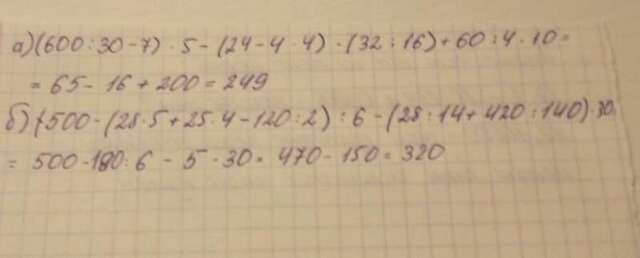 а)(600:30-7)·5-(24-4·4)·(32:16)+60:4·10=
=65-16+200=249
б)(500-(28·5+25·4-120:2):6-(28:14+420:140)·30=
=500-180:6-5·30=470-150=320